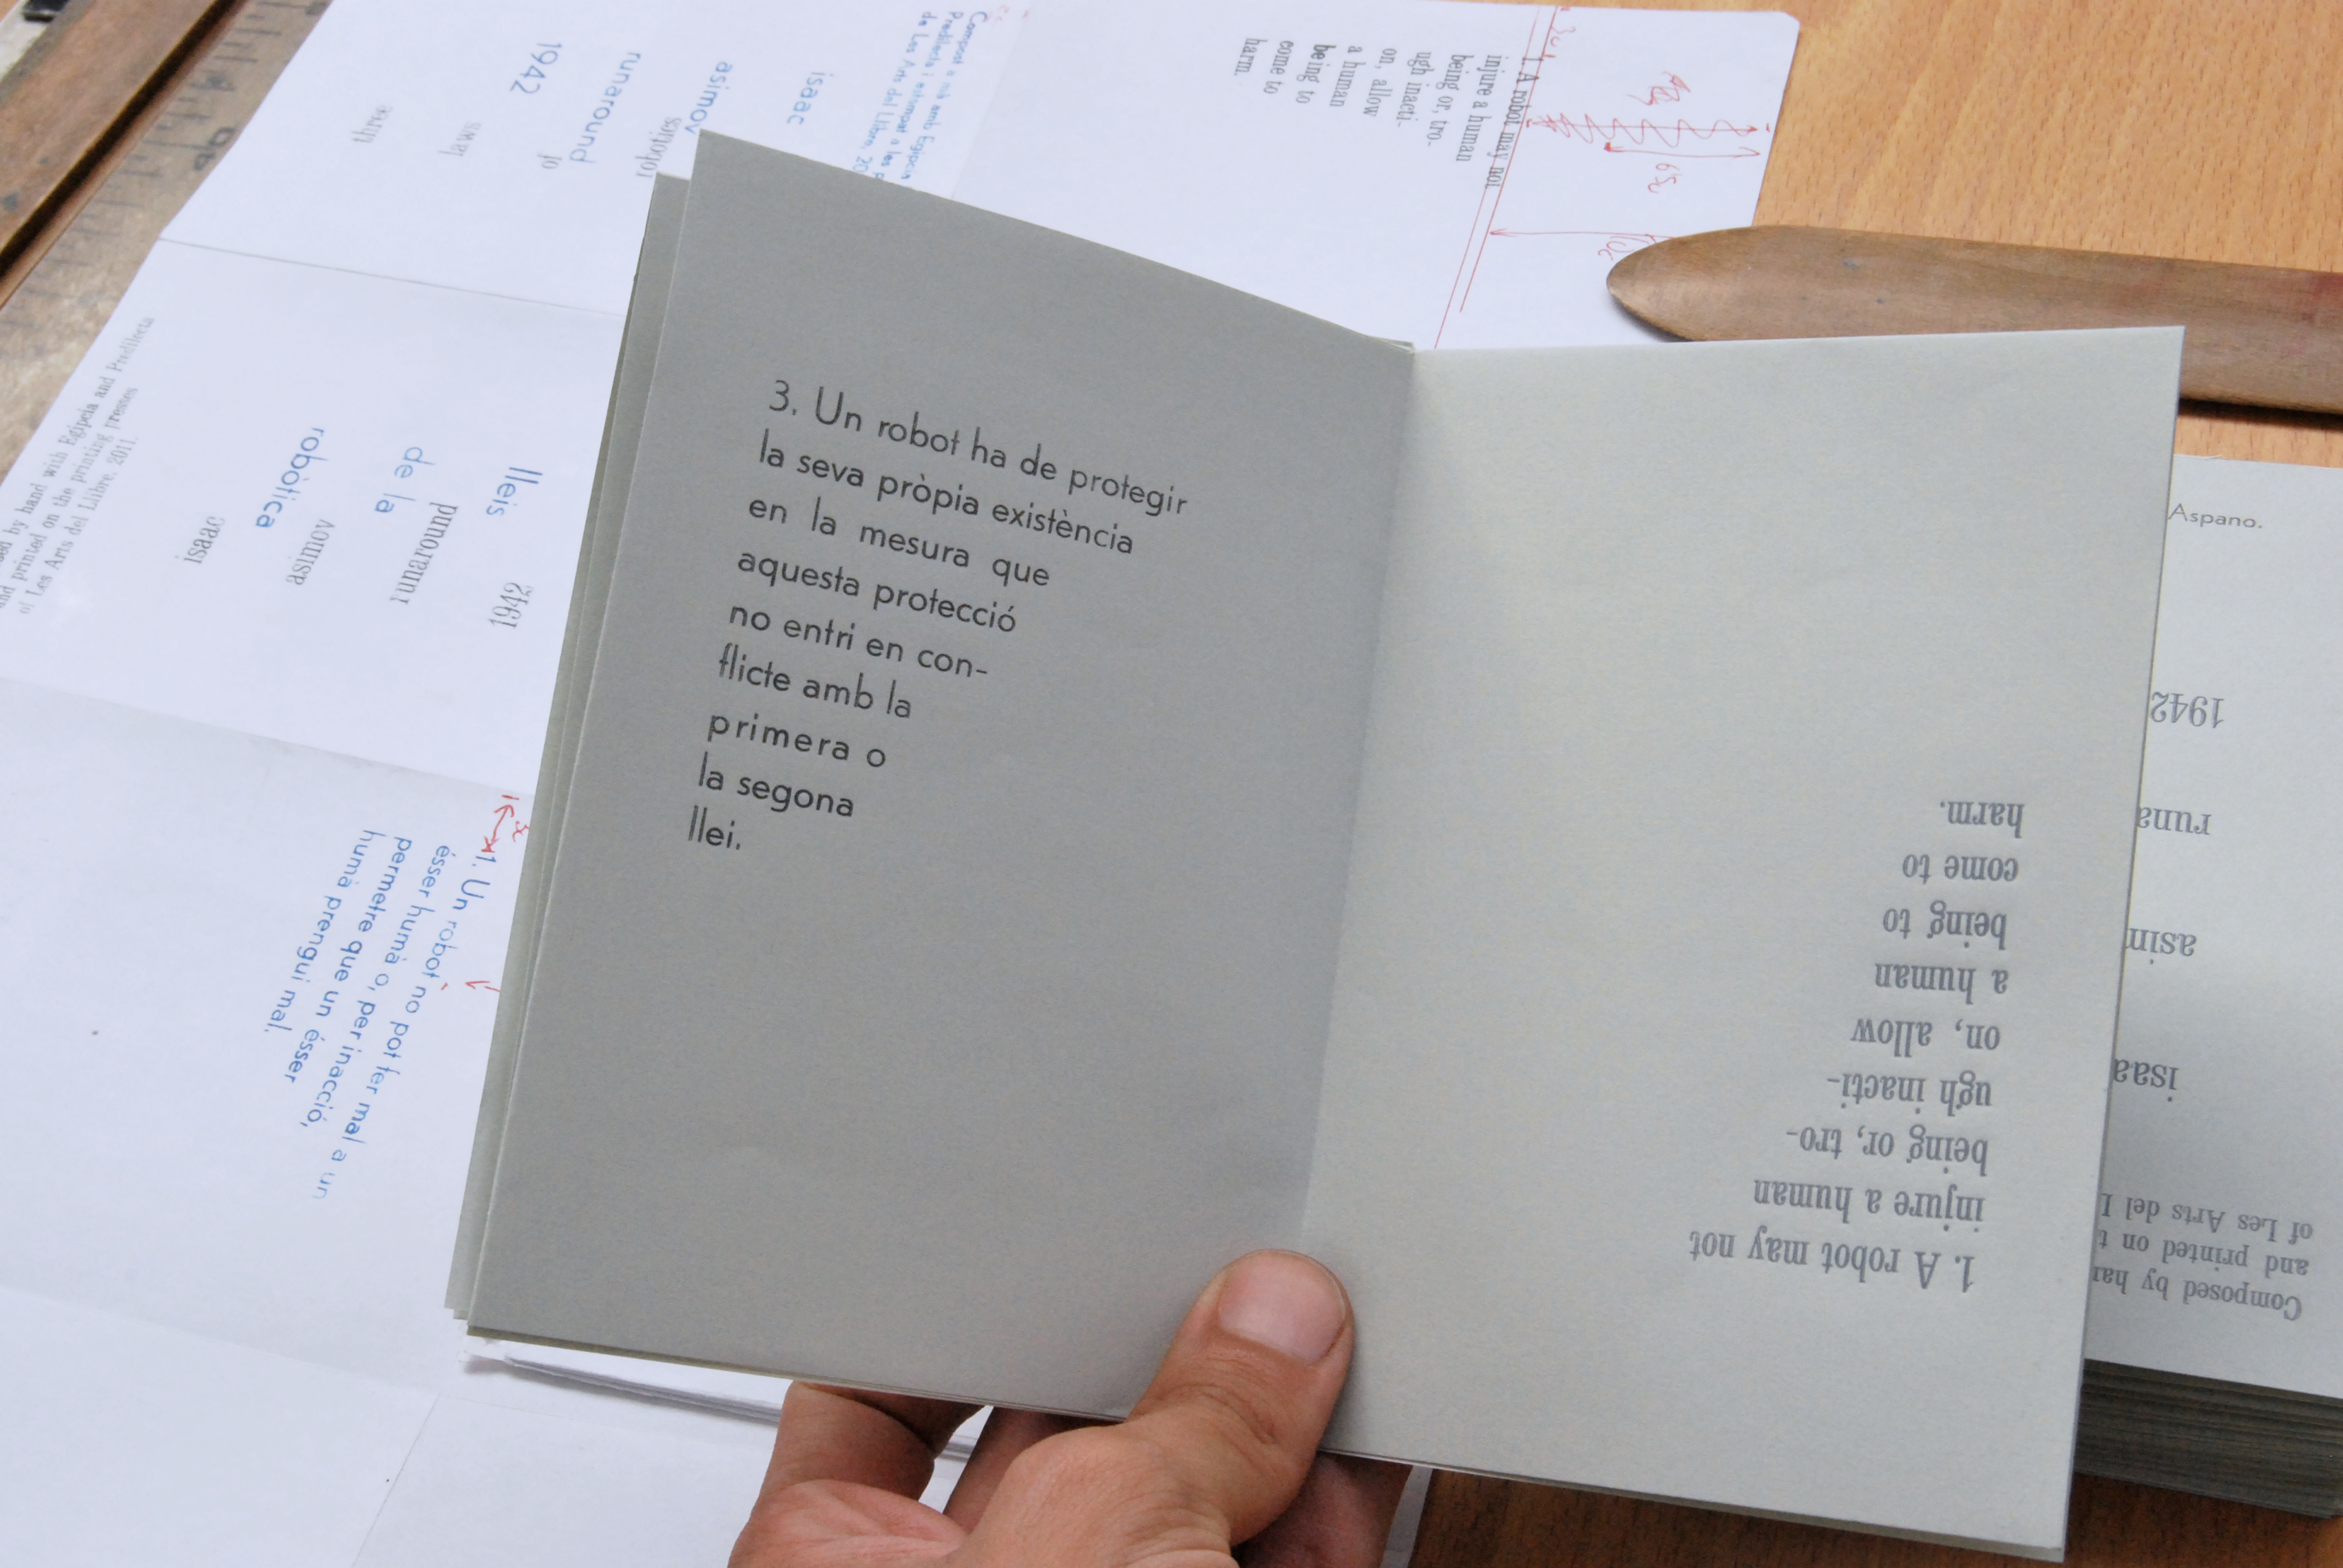 3. Un robot ha de protegir
la seva pròpia existència
en la mesura que
aquesta protecció
no entri en con-
flicte amb la
primera o
la segona
llei.
1. A robot may not
injure a human
being or, tro-
ugh inacti-
on, allow
a human
being to
come to
harm.
Aspano.
1942
runa
asim
isaa
Composed by har
and printed on t
of Les Arts del L
1. A robot may not
injure a human
being or, tro-
ugh inacti-
on, allow
a human
being to
come to
harm.
Compost a mà amb Egipcia
Predilecta i estampat a les p
de Les Arts del Llibre, 20
isaac
asimov
runaround
1942
three
laws
of
robotics
lleis
de la
robòtica
isaac
asimov
runaround
1942
ed by hand with Egipcia and Predilecta
and printed on the printing presses
of Les Arts del Llibre. 2011.
1. Un robot no pot fer mal a un
ésser humà o, per inacció,
permetre que un ésser
humà prengui mal.